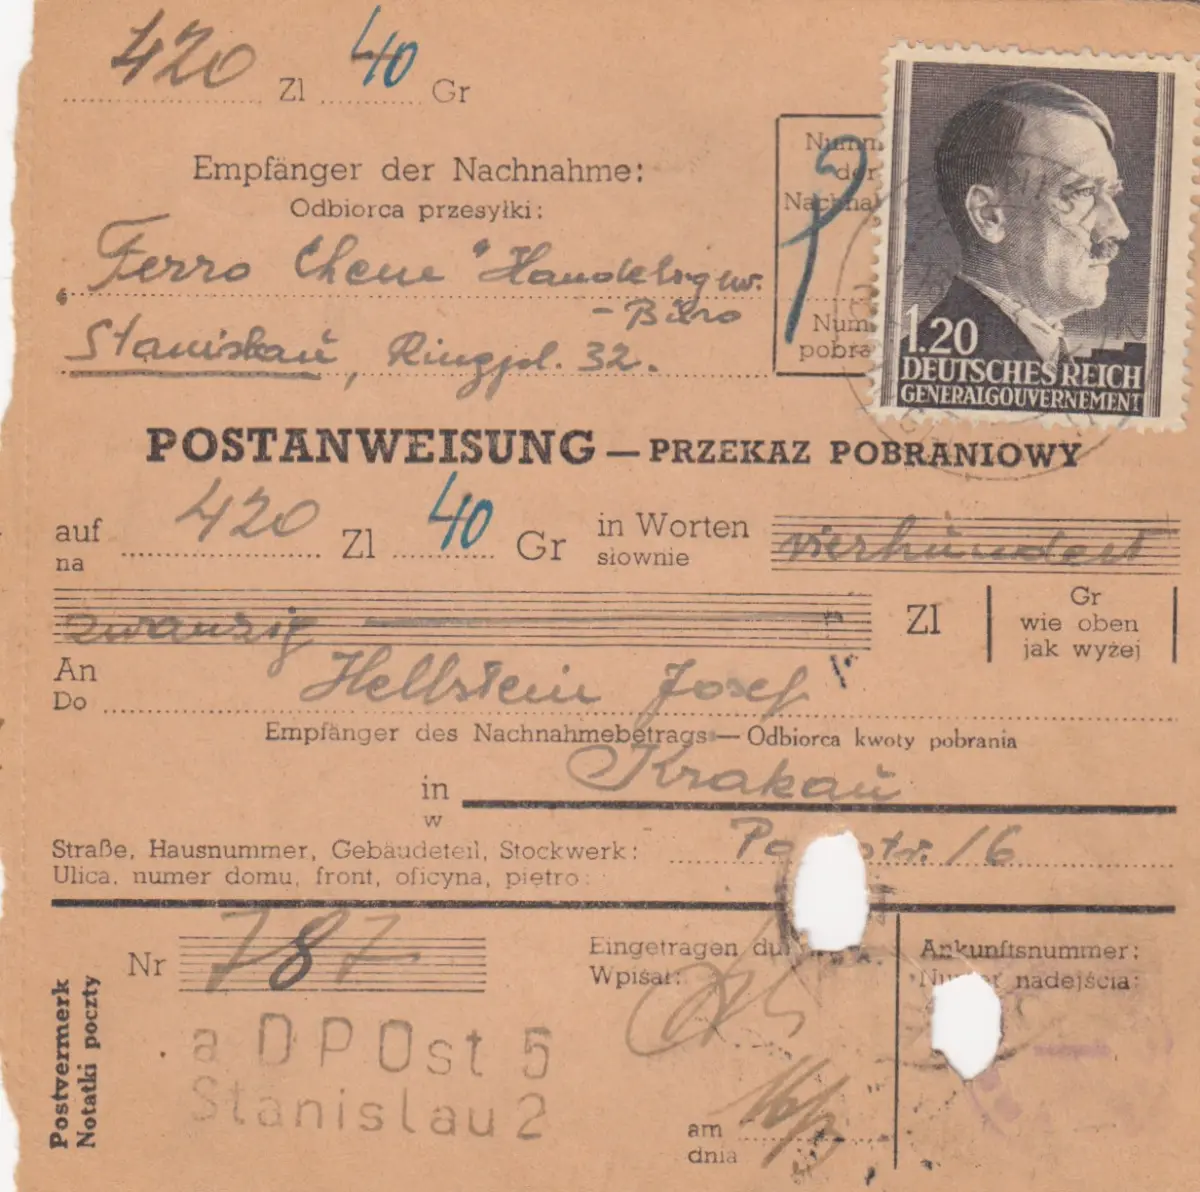 420 Zl 40 Gr
Empfänger der Nachnahme:
Odbiorca przesyłki:
Ferro Chene "Handelsgew.
- Büro
Stanislau, Ringpl. 32.
Numm
der
Nachna
Num
pobra
1.20
DEUTSCHES REICH
GENERALGOUVERNEMENT
POSTANWEISUNG — PRZEKAZ POBRANIOWY
auf 420 Zl 40 Gr in Worten vierhundert
na słownie
zwanzig Zl Gr
wie oben
jak wyżej
An Hellstein Josef
Do
Empfänger des Nachnahmebetrags — Odbiorca kwoty pobrania
in Krakau
w
Straße, Hausnummer, Gebäudeteil, Stockwerk: str. 16
Ulica, numer domu, front, oficyna, piętro:
Postvermerk
Notatki poczty
Nr 787
Eingetragen du
Wpisał:
Ankunftsnummer:
nadejścia:
a DPOst 5
Stanislau 2
am
dnia